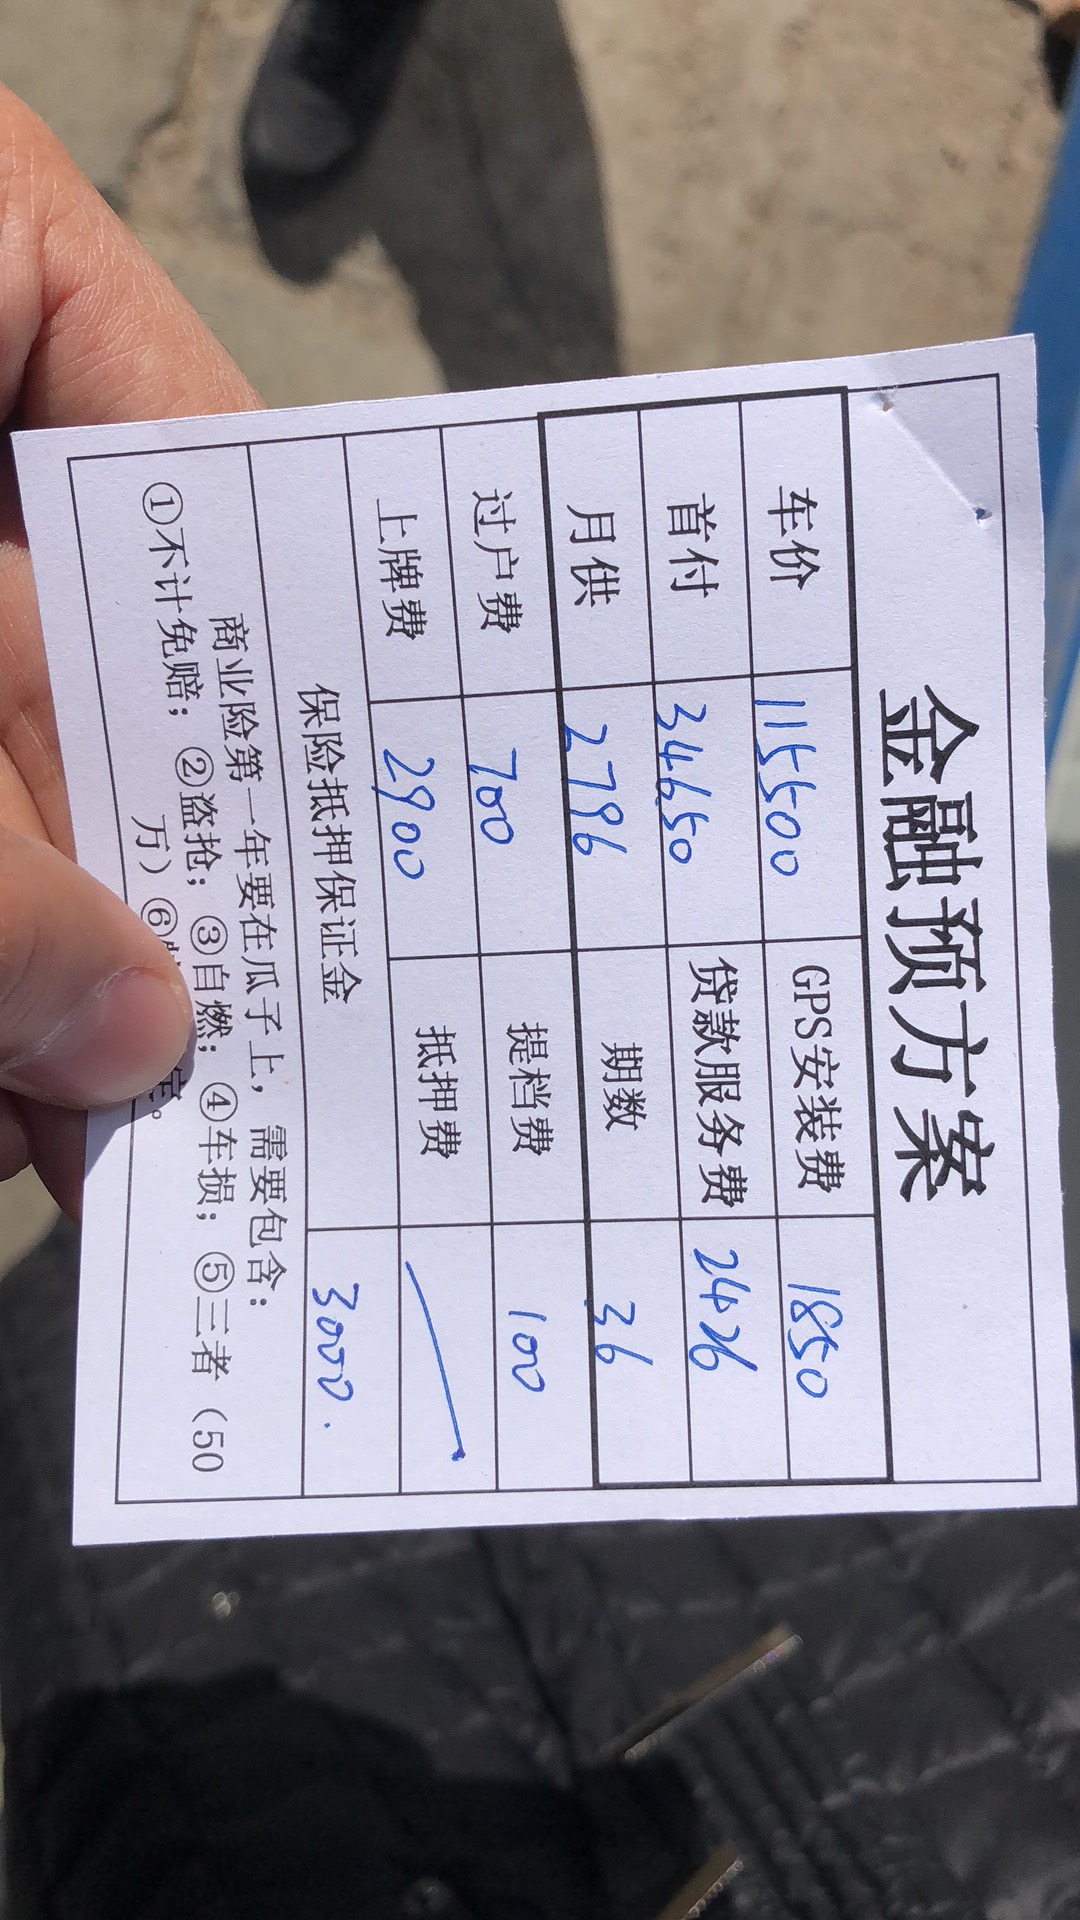 金融预方案
车价 115500 GPS安装费 1850
首付 34650 贷款服务费 2426
月供 2796 期数 36
过户费 700 提档费 100
上牌费 2900 抵押费
保险抵押保证金 3000.
商业险第一年要在瓜子上，需要包含：
①不计免赔；②盗抢；③自燃；④车损；⑤三者（50
万）⑥